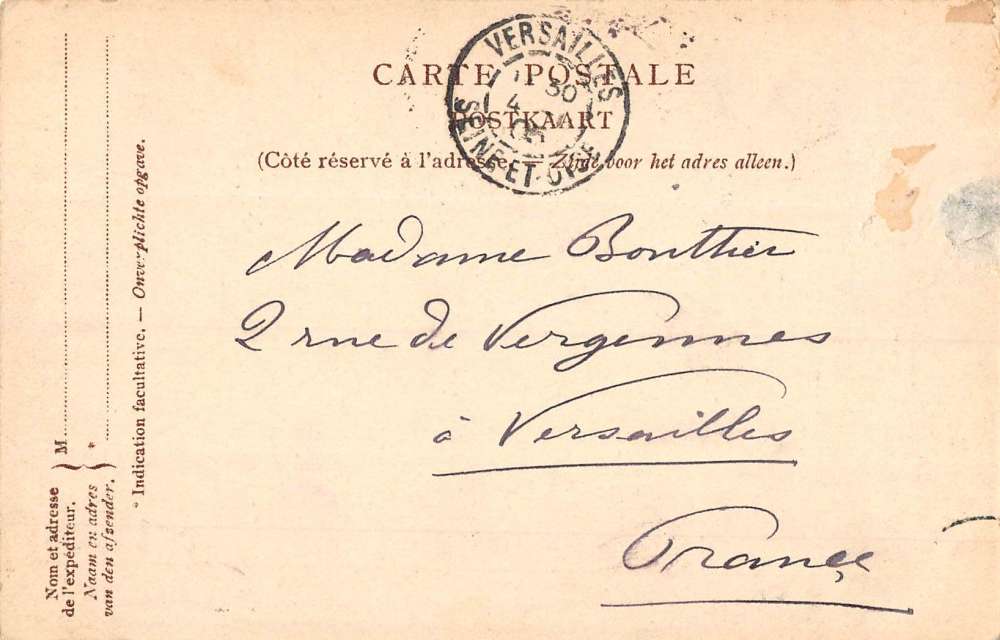 CARTE POSTALE
POSTKAART
(Côté réservé à l'adresse. — Zijde voor het adres alleen.)
VERSAILLES
30
4
SEINE-ET-OISE
Madame Bonthier
2 rue de Vergennes
à Versailles
France
Nom et adresse
de l'expéditeur.
Naam en adres
van den afzender.
M
*
* Indication facultative. — Onverplichte opgave.